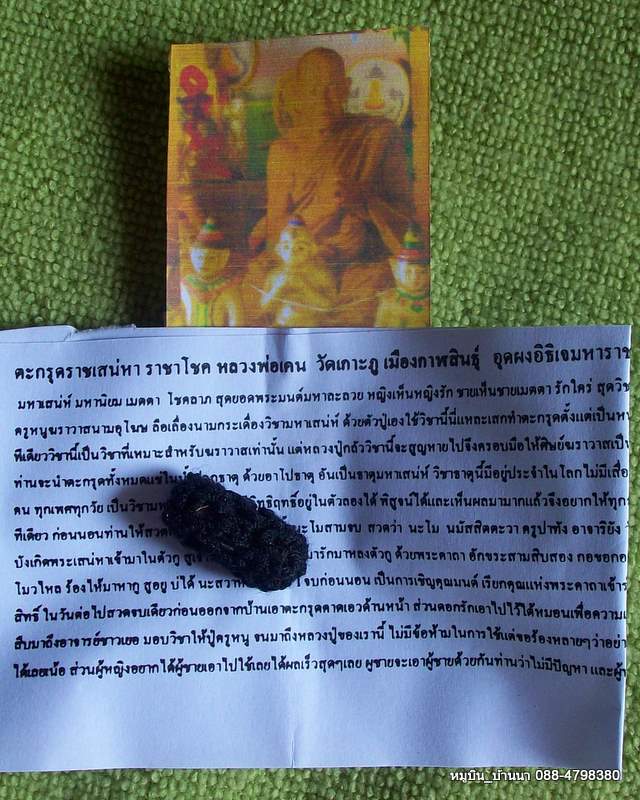 ตะกรุดราชเสน่หา ราชาโชค หลวงพ่อเคน วัดเกาะภู เมืองกาฬสินธุ์ อุดผงอิธิเจมหาราช
มหาเสน่ห์ มหานิยม เมตตา โชคลาภ สุดยอดพระมนต์มหาละลวย หญิงเห็นหญิงรัก ชายเห็นชายเมตตา รักใคร่ สุดวิช
ครูหนูฆราวาสนามอุโฆษ ลือเลื่องนามกระเดื่องวิชามหาเสน่ห์ ด้วยตัวปู่เองใช้วิชานี้นี่แหละเสกทำตะกรุดตั้งแต่เป็นหน
ทีเดียววิชานี้เป็นวิชาที่เหมาะสำหรับฆราวาสเท่านั้น แต่หลวงปู่กลัววิชานี้จะสูญหายไปจึงครอบมือให้ศิษย์ฆราวาสเป็น
ท่านจะนำตะกรุดทั้งหมดแช่ในน้ำ ธาตุ ด้วยอาโปธาตุ อันเป็นธาตุมหาเสน่ห์ วิชาธาตุนี้มีอยู่ประจำในโลกไม่มีเสื่อ
คน ทุกเพศทุกวัย เป็นวิชามห ิทธิฤทธิ์อยู่ในตัวลองได้ พิสูจน์ได้และเห็นผลมามากแล้วจึงอยากให้ทุก
ทีเดียว ก่อนนอนท่านให้สวด นะโมสามจบ สวดว่า นะโม นมัสสิตตะวา ครูปาทัง อาจาริยัง
บังเกิดพระเสน่หาเข้ามาในตัวกู สู มารักมาหลงตัวกู ด้วยพระคาถา อักขระสามสิบสอง กอขอกอ
โมวไหล ร้องไห้มาหากู สูอยู่ บ่ได้ นะสวาห จบก่อนนอน เป็นการเชิญคุณมนต์ เรียกคุณแห่งพระคาถาเข้าร
สิทธิ์ ในวันต่อไปสวดจบเดียวก่อนออกจากบ้านเอาตะกรุดคาดเอวด้านหน้า ส่วนดอกรักเอาไปไว้ใต้หมอนเพื่อความเ
สืบมาถึงอาจารย์ขาวเยอ มอบวิชาให้ปู่ครูหนู จนมาถึงหลวงปู่ของเรานี้ ไม่มีข้อห้ามในการใช้แต่ขอร้องหลายๆว่าอย่า
ได้เลอะเน้อ ส่วนผู้หญิงอยากได้ผู้ชายเอาไปใช้เลยได้ผลเร็วสุดๆเลย ผู้ชายจะเอาผู้ชายด้วยกันท่านว่าไม่มีปัญหา และผู้ท
หมูบิน_บ้านนา 088-4798380